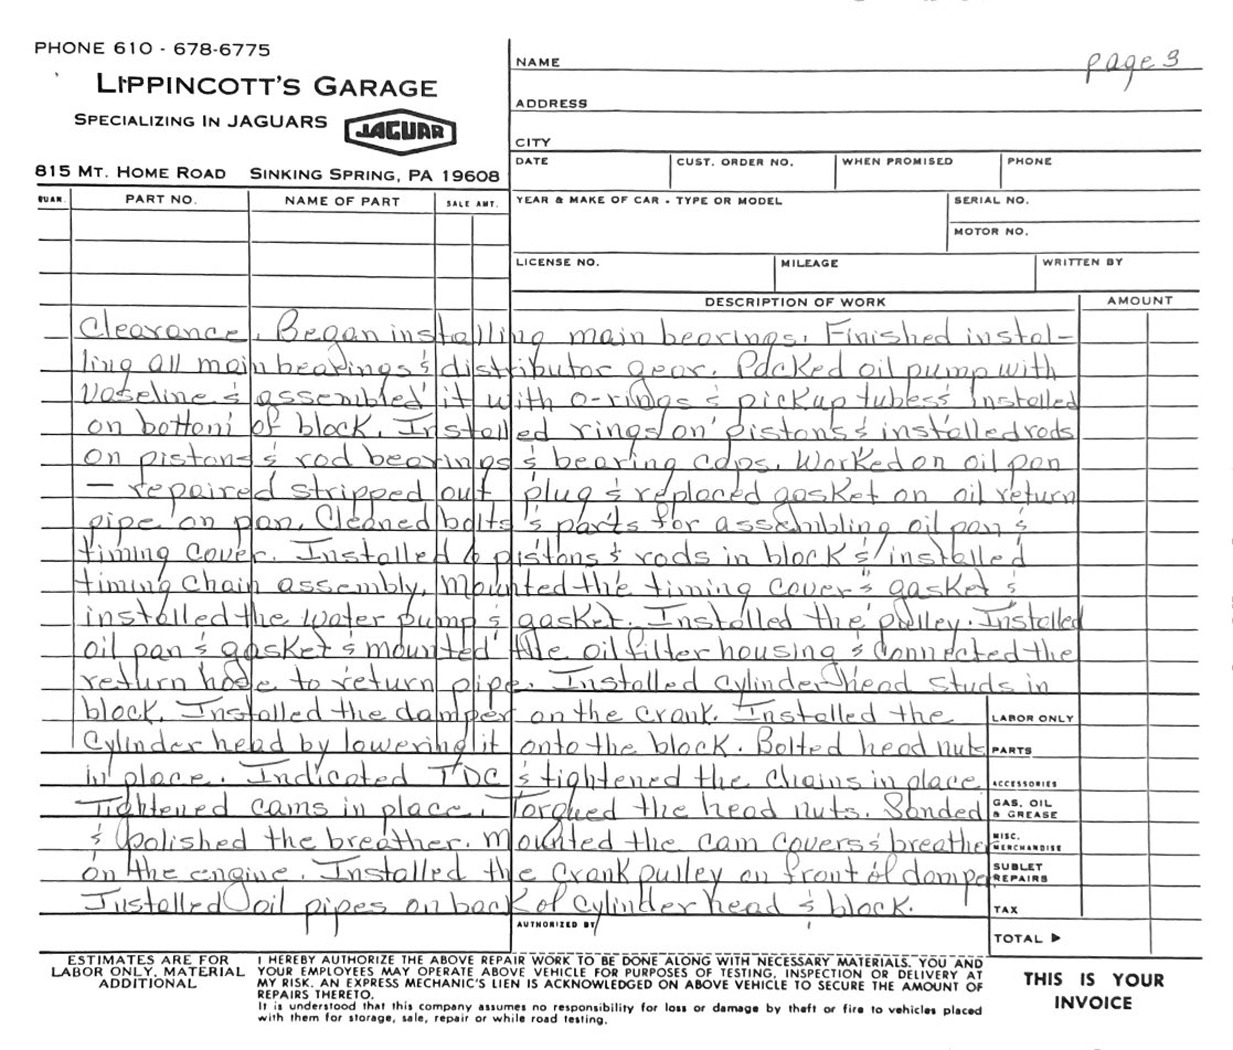 PHONE 610 - 678-6775
LIPPINCOTT'S GARAGE
SPECIALIZING IN JAGUARS JAGUAR
815 MT. HOME ROAD SINKING SPRING, PA 19608
NAME page 3
ADDRESS
CITY
DATE CUST. ORDER NO. WHEN PROMISED PHONE
QUAN. PART NO. NAME OF PART SALE AMT. YEAR & MAKE OF CAR - TYPE OR MODEL SERIAL NO.
MOTOR NO.
LICENSE NO. MILEAGE WRITTEN BY
DESCRIPTION OF WORK AMOUNT
Clearance. Began installing main bearings. Finished instal-
ling all main bearings & distributor gear. Packed oil pump with
Vaseline & assembled it with o-rings & pickup tubes & installed
on bottom of block. Installed rings on pistons & installed rods
on pistons & rod bearings & bearing caps. Worked on oil pan
— repaired stripped out plug & replaced gasket on oil return
pipe on pan. Cleaned bolts & parts for assembling oil pan &
timing cover. Installed 6 pistons & rods in block & installed
timing chain assembly. Mounted the timing cover & gasket &
installed the water pump & gasket. Installed the pulley. Installed
oil pan & gasket & mounted the oil filter housing & connected the
return hose to return pipe. Installed cylinder head studs in
block. Installed the damper on the crank. Installed the
Cylinder head by lowering it onto the block. Bolted head nuts
in place. Indicated TDC & tightened the chains in place
Tightened cams in place. Torqued the head nuts. Sanded
& polished the breather. Mounted the cam covers & breather
on the engine. Installed the crank pulley on front of damper
Installed oil pipes on back of cylinder head & block.
LABOR ONLY
PARTS
ACCESSORIES
GAS, OIL & GREASE
MISC. MERCHANDISE
SUBLET REPAIRS
TAX
AUTHORIZED BY
TOTAL ▶
ESTIMATES ARE FOR
LABOR ONLY, MATERIAL
ADDITIONAL
I HEREBY AUTHORIZE THE ABOVE REPAIR WORK TO BE DONE ALONG WITH NECESSARY MATERIALS. YOU AND
YOUR EMPLOYEES MAY OPERATE ABOVE VEHICLE FOR PURPOSES OF TESTING, INSPECTION OR DELIVERY AT
MY RISK. AN EXPRESS MECHANIC'S LIEN IS ACKNOWLEDGED ON ABOVE VEHICLE TO SECURE THE AMOUNT OF
REPAIRS THERETO.
It is understood that this company assumes no responsibility for loss or damage by theft or fire to vehicles placed
with them for storage, sale, repair or while road testing.
THIS IS YOUR
INVOICE